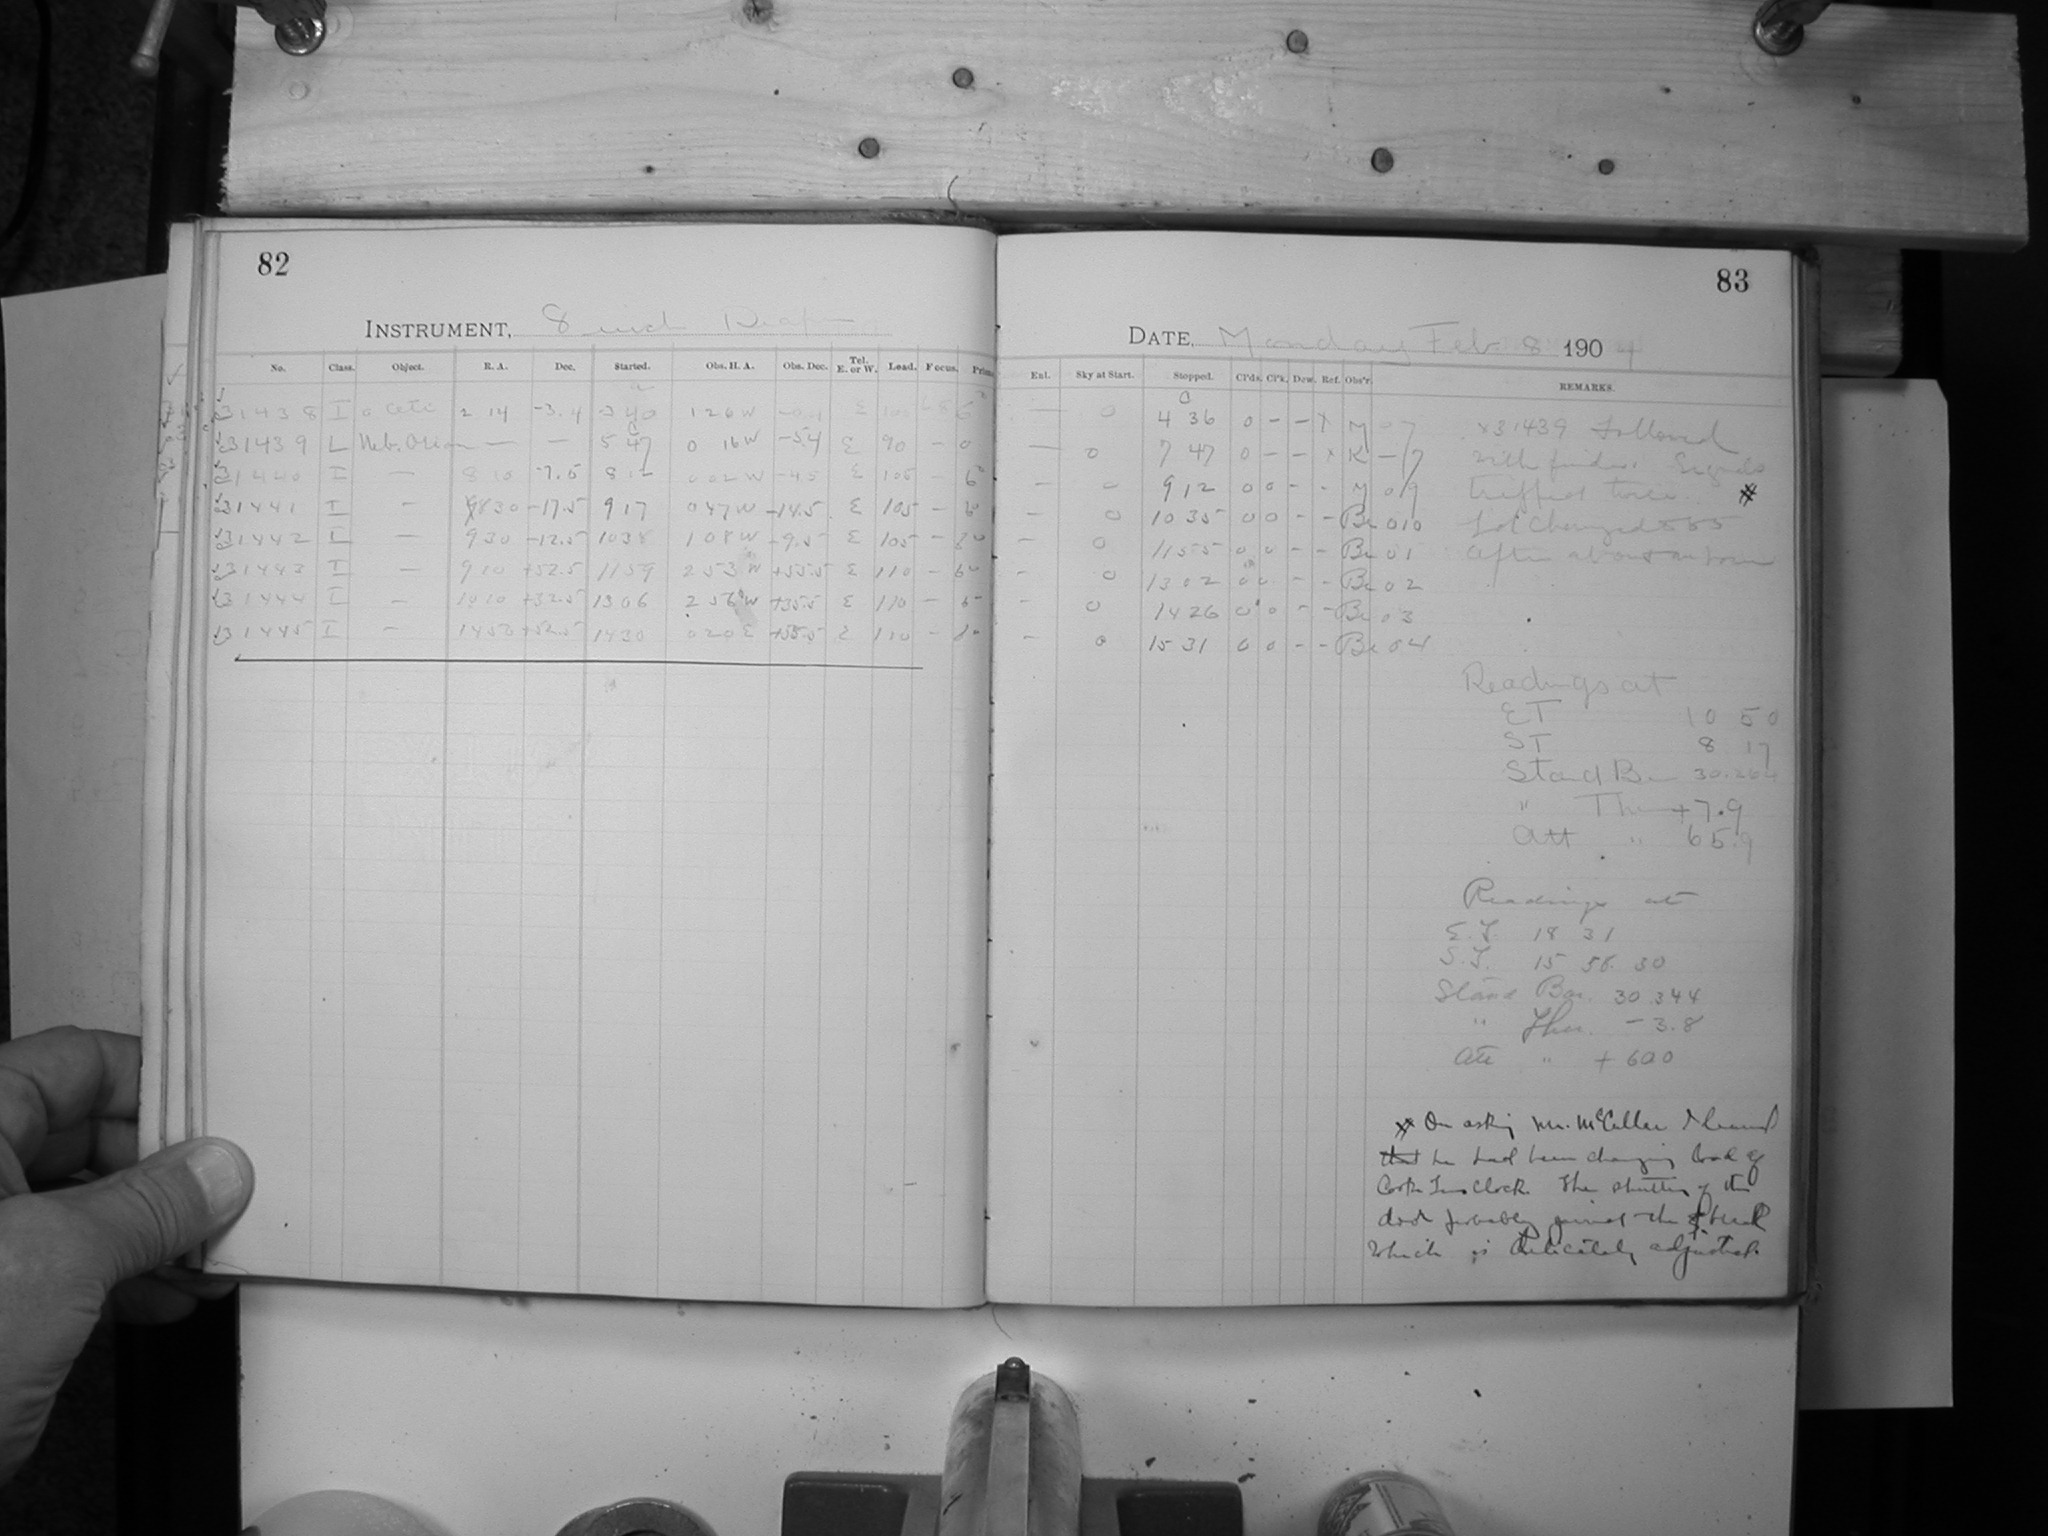 82
INSTRUMENT, 8 inch Draper
No. Class. Object. R. A. Dec. Started. Obs. H. A. Obs. Dec. Tel. E. or W. Lead. Focus. Prism
31438 I o Ceti 2 14 -3.4 3 40 1 26 W E
31439 L Neb. Orion — — 5 47 0 16 W -5.4 E 90 - 0
31440 I — 8 10 -7.5 8 12 0 02 W -4.5 E 105 - 6
31441 I — 8 30 -17.5 9 17 0 47 W -14.5 E 105 - 6
31442 I — 9 30 -12.5 10 38 1 08 W -9.5 E 105 -
31443 I — 9 10 +52.5 11 59 2 53 W +55.5 E 110 - 6
31444 I — 10 10 +32.5 13 06 2 56 W +35.5 E 110 - 6
31445 I — 14 50 +52.5 14 30 0 20 E +55.5 E 110 - 6
83
DATE, Monday Feb. 8 1904
Enl. Sky at Start. Stopped. Cl'ds. Cl'k. Dew. Ref. Obs'r. REMARKS.
— 0 4 36 0 - - x M 07 x31439 Followed
— 0 7 47 0 - - x K - 7 with finder. Signals
- - 9 12 0 0 - - M 09 tripped twice. #
- 0 10 35 0 0 - - Be 010 Lot changed
- 0 11 55 0 0 - - Be 01 after about an hour
- 0 13 02 0 0 - - Be 02
- 0 14 26 0 0 - - Be 03
- 0 15 31 0 0 - - Be 04
Readings at
ET 10 50
ST 8 17
Stand Bar 30.264
" Ther +7.9
Att " 65.9
Readings at
E.T. 18 31
S.T. 15 58 30
Stand Bar. 30 344
" Ther. - 3.8
Att " + 60.0
# On asking Mr. McCallar I learned
that he had been changing lead of
Cook Lens Clock. The shutting of the
door probably jarred the thread
which is delicately adjusted.